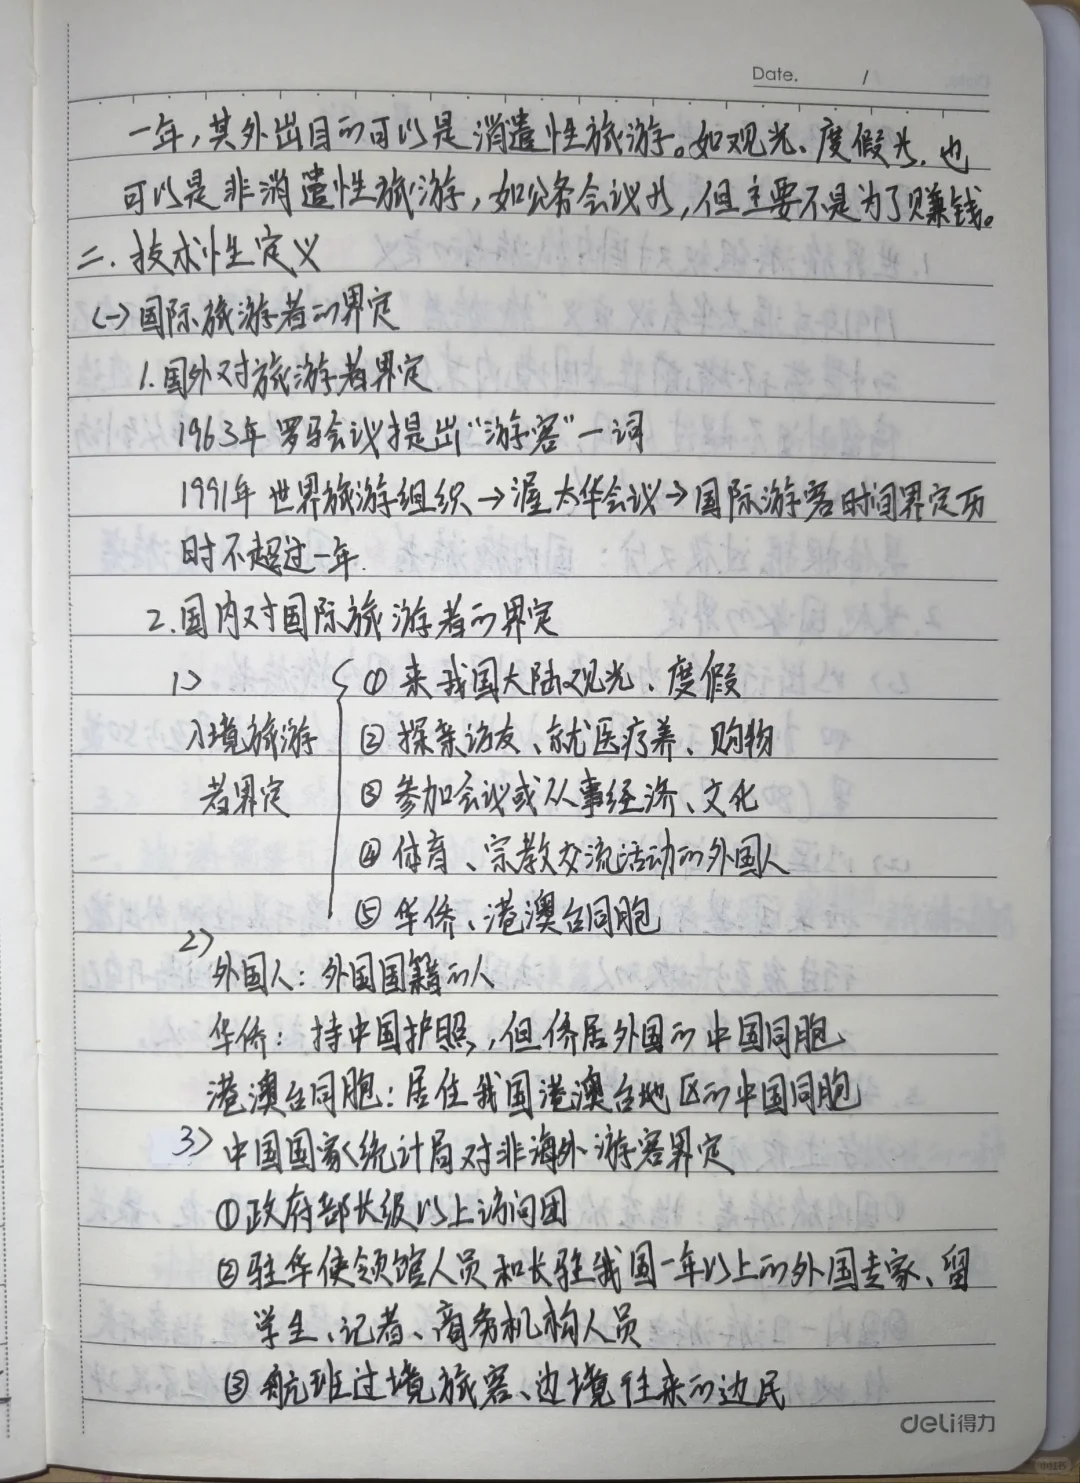 Date. /
一年,其外出目的可以是消遣性旅游。如观光、度假为,也
可以是非消遣性旅游,如公务会议为,但主要不是为了赚钱。
二.技术性定义
(一)国际旅游者的界定
1.国外对旅游者界定
1963年罗马会议提出“游客”一词
1991年世界旅游组织→渥太华会议→国际游客时间界定历
时不超过一年.
2.国内对国际旅游者的界定
1> ①来我国大陆观光、度假
入境旅游 ②探亲访友、就医疗养、购物
者界定 ③参加会议或从事经济、文化
④体育、宗教交流活动的外国人
⑤华侨、港澳台同胞
2>
外国人:外国国籍的人
华侨:持中国护照,但侨居外国的中国同胞
港澳台同胞:居住我国港澳台地区的中国同胞
3>中国国家统计局对非海外游客界定
①政府部长级以上访问团
②驻华使领馆人员和长驻我国一年以上的外国专家、留
学生、记者、商务机构人员
③航班过境旅客、边境往来的边民
deli得力